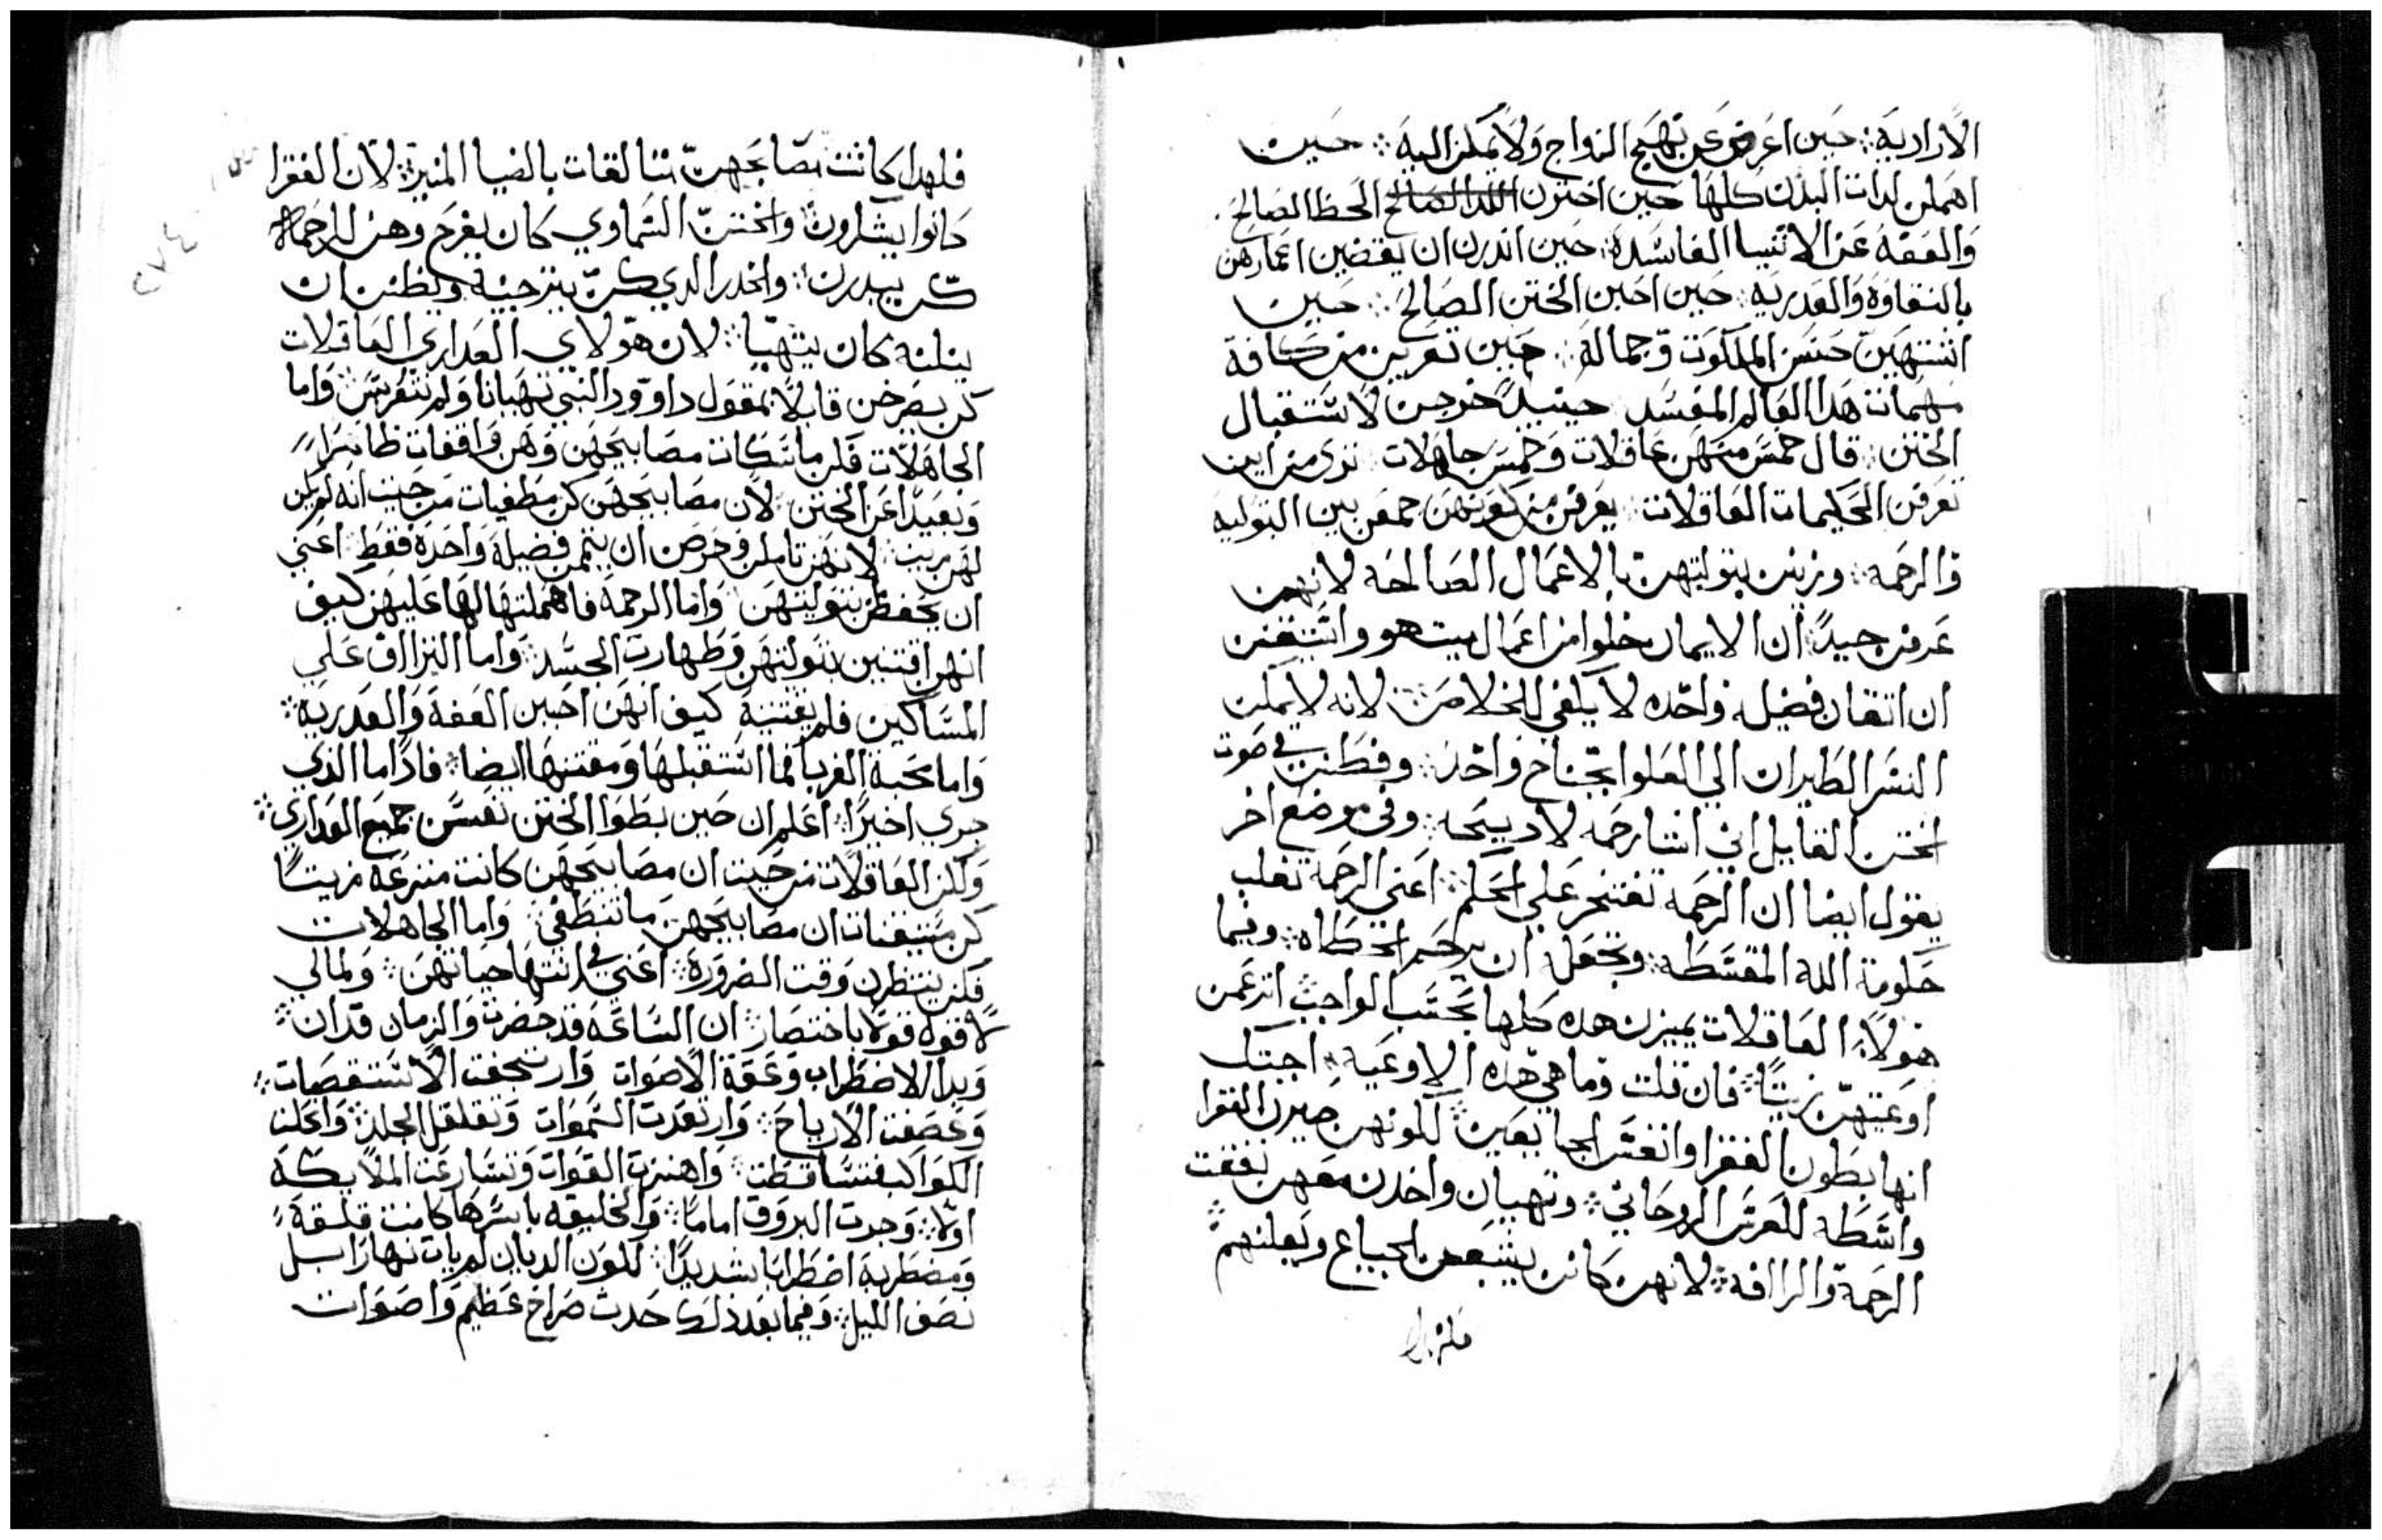 الارادية ∴ حين اعرضن عن تهيج الزواج ولا يملن اليه ∴ حين
اهملن لدات البدن كلها حين اخترن الحظ الصالح
والعفة عن الاشيا الفاسدة ∴ حين اندرن ان يقضين اعمارهن
بالنقاوة والعدرية ∴ حين احبين الختن الصالح ∴ حين
اشتهين حسن الملكوت وجماله ∴ حين تعرين من كافة
مهمات هدا العالم المفسد حينيدٍ خرجن لاستقبال
الختن ∴ قال خمس منهن عاقلات وخمس جاهلات ترى من اين
تعرفن الحكيمات العاقلات يعرفن من كونهن جمعن بين البتولية
والرحمة ∴ وزين بتوليتهن بالاعمال الصالحه لانهن
عرفن جيداً ان الايمان خلوا من اعمال ميت هو واستيقنن
ان اتقان فضيله واحده لا يكفي للخلاص ∴ لانه لا يمكن
النسر الطيران الي العلو بجناح واحد ∴ وفطنن في صوت
الختن القايل اني اشا رحمه لا دبيحه ∴ وفي موضع اخر
يقول ايضا ان الرحمه تفتخر علي الحكم ∴ اعني الرحمة تغلب
حكومة الله المقسطه ∴ وتجعله ان يرحم الخطاه ∴ وفيما
هولاء العاقلات يميزن هده كلها بحسب الواجب اترعمن
اوعيتهن زيتاً ∴ فان قلت وما هي هده الاوعية ∴ اجبتك
انها بطون الفقرا وانفس الجايعين ∴ لكونهن صيرن الفقرا
واسطة للعرس الروحاني ∴ وتهيان واخدن معهن نفقت
الرحمة والراافه ∴ لانهن كانن يشبعن الجياع ويعلنهم ∴
فلهدا
فلهدا كانت مصابحهن تتالقات بالضيا المنير ∴ لان الفقرا
كانوا يشكرون ∴ والختن السماوي كان يفرح وهن الرحمة
كن يبدرن ∴ والخدر الدي كن يترجينه ويظنن ان
ينلنه كان يتهيا ∴ لان هولاي العداري العاقلات
كن يصرخن قايلاً بمقول داوود النبي تهيانا ولم نتفرسس واما
الجاهلات فلن ماسكات مصابيحهن وهن واقفات ظاهراً
وبعيداً عن الختن ∴ لان مصابيحهن كن مطفيات من حيث انه لم يكن
لهن زيت ∴ لانهن تاملن وحرصن ان يتممن فضيلة واحدة فقط اعني
ان يحفظن بتوليتهن ∴ واما الرحمة فاهملتها لها عليهن كيف
انهن اقتنين بتوليتهن وطهارت الجسد ∴ واما التراف علي
المساكين فلم يقتنينه كيف انهن احبين العفة والعدرية ∴
واما محبة الغربا فما استقبلها ومقتنها ايضا ∴ فادا ما الذي
جري اخيراً اعلم ان حين بطوا الختن نعسن جميع العداري ∴
ولكن العاقلات من حيث ان مصابيحهن كانت مترعة زيتاً
كن مستيقنات ان مصابيحهن ما تنطفي ∴ واما الجاهلات
فكن ينتظرن وقت الضرورة ∴ اعني في انتها حياتهن ∴ ولمالي
لا قوله قولا باختصار ∴ ان الساعة قد حضرت والزمان قد ان ∴
وبدا الاضطراب وعقة الاصوات وارتجفت الاستقصات ∴
وعصفت الارياح ∴ وارتعدت السموات وتقلقل الجلد ∴ واتحلت
الكواكب فتساقطت ∴ واهتزت القوات وتسارعت الملايكة
اولاً ∴ وجرت البروق اماماً ∴ والخليقه باسرها كانت قلقة
ومضطربة اضطراباً شديداً ∴ لكون الديان لم يات نهاراً بل
نصف الليل ∴ وفيما بعد ذلك حدث صراخ عظيم واصوات